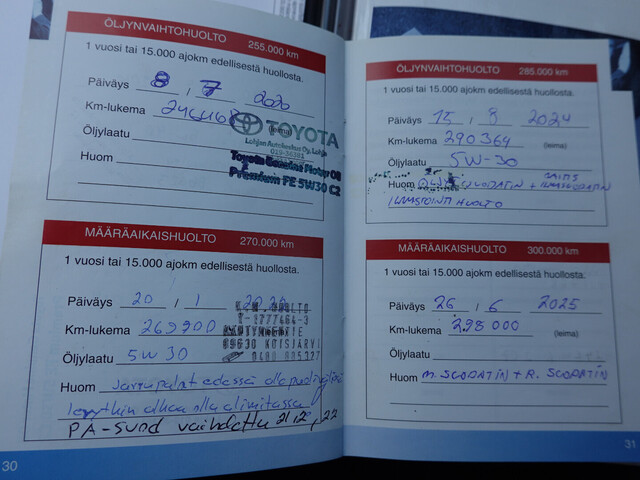 ÖLJYNVAIHTOHUOLTO 255.000 km
1 vuosi tai 15.000 ajokm edellisestä huollosta.
Päiväys 8 / 7 2020
Km-lukema (leima)
Öljylaatu
Huom
TOYOTA
Lohjan Autokeskus Oy, Lohja
Toyota Genuine Motor Oil
Premium FE 5W30 C2
MÄÄRÄAIKAISHUOLTO 270.000 km
1 vuosi tai 15.000 ajokm edellisestä huollosta.
Päiväys 20 / 1
Km-lukema 269900
Öljylaatu 5W30
Huom Jarrupalat edessä
PA-suod vaihdettu 21,2, 22
30
ÖLJYNVAIHTOHUOLTO 285.000 km
1 vuosi tai 15.000 ajokm edellisestä huollosta.
Päiväys 15 / 8 2024
Km-lukema 290364 (leima)
Öljylaatu 5W-30
Huom SUODATIN + RAITIS ILMASUODATIN
ILMASTOINTI HUOLTO
MÄÄRÄAIKAISHUOLTO 300.000 km
1 vuosi tai 15.000 ajokm edellisestä huollosta.
Päiväys 26 / 6 2025
Km-lukema 298000 (leima)
Öljylaatu
Huom M. SUODATIN + R. SUODATIN
31